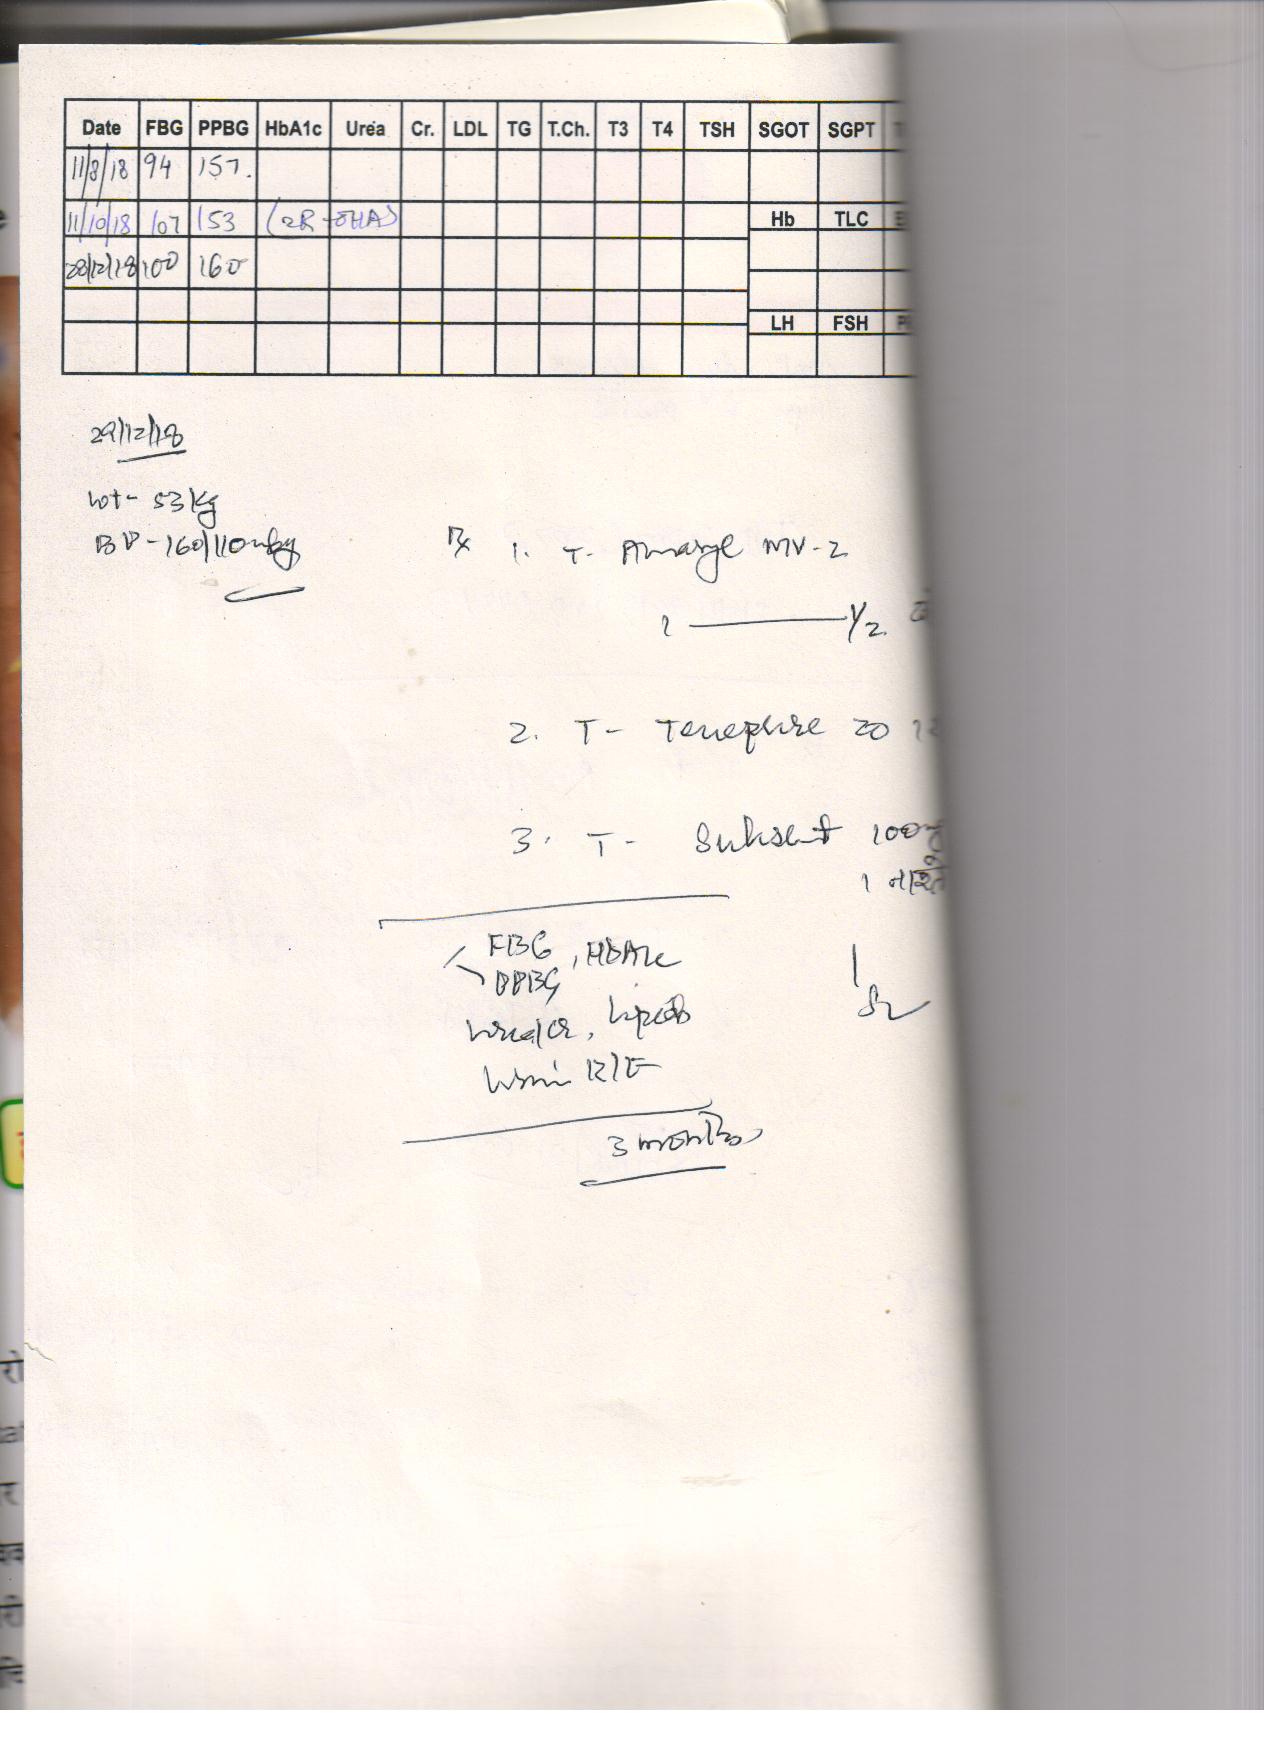 Date FBG PPBG HbA1c Urea Cr. LDL TG T.Ch. T3 T4 TSH SGOT SGPT
11/8/18 94 157.
11/10/18 107 153 Hb TLC
28/12/18 100 160
LH FSH
29/12/18
wt- 53 kg
BP - 160/110 mmHg
Rx 1. T- Amaryl MV-2
1 1/2
2. T- 20
3. T- 100mg
1
FBG, HbA1c
PPBG
Urea/Cr, Lipids
Urine R/E
3 months